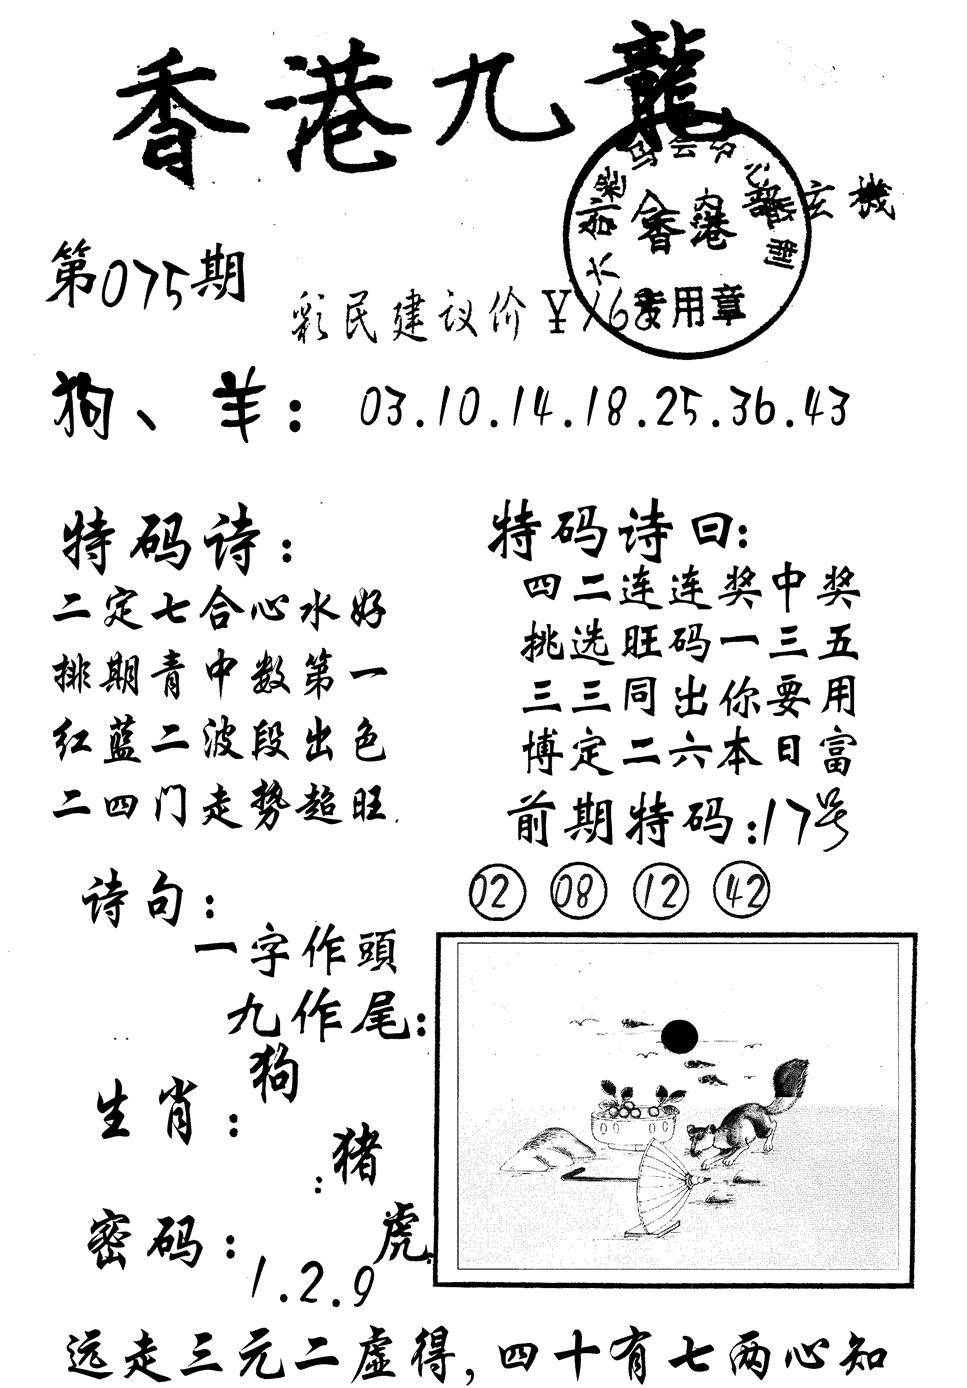 香港九龍
玄機
香港
专用章
第075期
彩民建议价￥168
狗、羊：03.10.14.18.25.36.43
特码诗：
二定七合心水好
排期青中数第一
红蓝二波段出色
二四门走势超旺.
特码诗曰：
四二连连奖中奖
挑选旺码一三五
三三同出你要用
博定二六本日富
前期特码：17号
02 08 12 42
诗句：
一字作頭
九作尾：
生肖：
狗
：猪
虎
密码：
1.2.9
远走三元二虚得，四十有七两心知